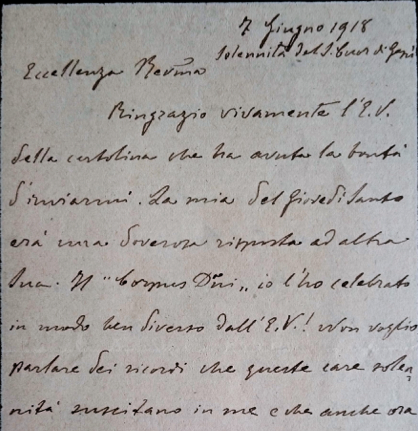 7 Giugno 1918
Solennità del S. Cuor di Gesù
Eccellenza Rev͂ma
Ringrazio vivamente l'E.V.
della cartolina che ha avuta la bontà
d'inviarmi. La mia del Giovedì Santo
era una doverosa risposta ad altra
Sua. Il "Corpus Dni" io l'ho celebrato
in modo ben diverso dall'E.V.! Non voglio
parlare dei ricordi che queste care solen
nità suscitano in me e che anche ora